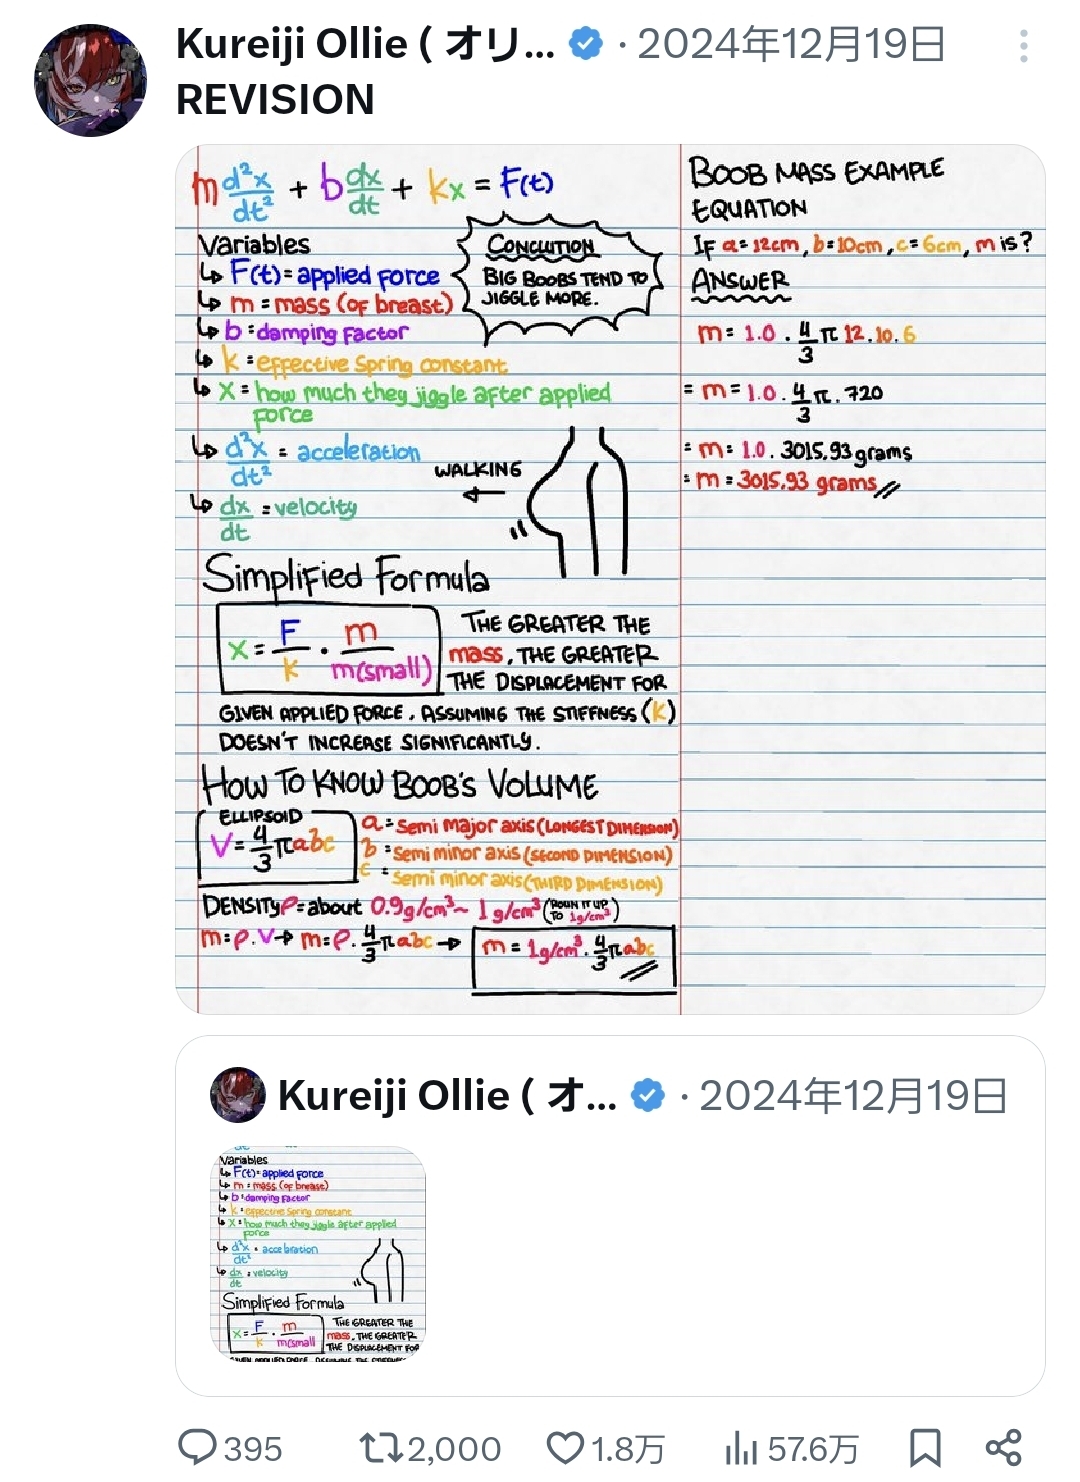 Kureiji Ollie ( オリ... · 2024年12月19日
REVISION
m d²x/dt² + b dx/dt + kx = F(t)
Variables
↳ F(t) = applied force
↳ m = mass (of breast)
↳ b = damping factor
↳ k = effective spring constant
↳ x = how much they jiggle after applied
force
↳ d²x/dt² = acceleration
↳ dx/dt = velocity
CONCLUTION
BIG BOOBS TEND TO
JIGGLE MORE.
WALKING
←
Simplified Formula
x = F/k · m/m(small)
THE GREATER THE
mass, THE GREATER
THE DISPLACEMENT FOR
GIVEN APPLIED FORCE, ASSUMING THE STIFFNESS (k)
DOESN'T INCREASE SIGNIFICANTLY.
HOW TO KNOW BOOB'S VOLUME
ELLIPSOID
V = 4/3 πabc
a = semi major axis (LONGEST DIMENSION)
b = semi minor axis (SECOND DIMENSION)
c = semi minor axis (THIRD DIMENSION)
DENSITY ρ = about 0.9g/cm³ ~ 1g/cm³ (ROUN IT UP TO 1g/cm³)
m = ρ.V → m = ρ. 4/3 πabc → m = 1g/cm³ . 4/3 πabc
BOOB MASS EXAMPLE
EQUATION
IF a = 12cm, b = 10cm, c = 6cm, m is?
ANSWER
m = 1.0 . 4/3 π 12.10.6
= m = 1.0 . 4/3 π . 720
= m = 1.0 . 3015.93 grams
= m = 3015.93 grams
Kureiji Ollie ( オ... · 2024年12月19日
Variables
↳ F(t) = applied force
↳ m = mass (of breast)
↳ b = damping factor
↳ k = effective spring constant
↳ x = how much they jiggle after applied
force
↳ d²x/dt² = acceleration
↳ dx/dt = velocity
Simplified Formula
x = F/k · m/m(small
THE GREATER THE
mass, THE GREATER
THE DISPLACEMENT FOR
395 2,000 1.8万 57.6万